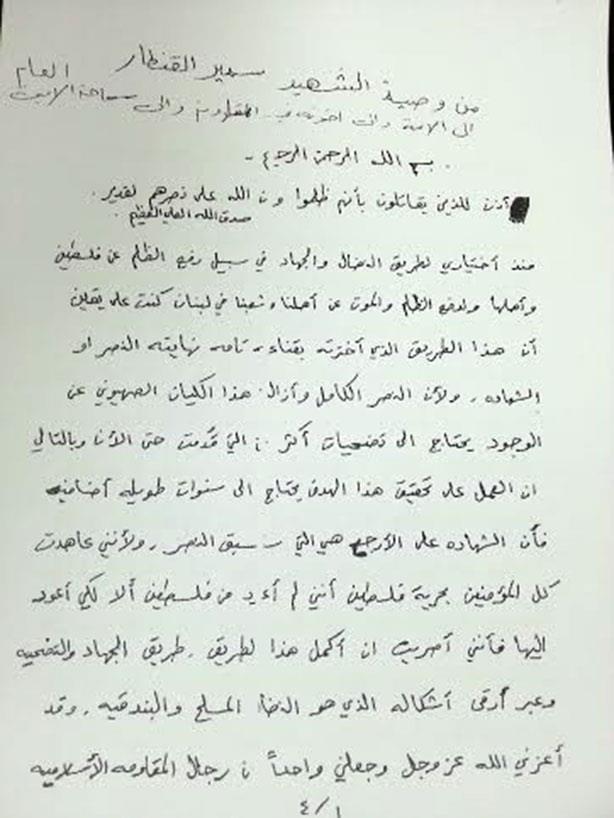 من وصية الشهيد سمير القنطار
الى الامة والى اخوته في المقاومة والى سماحة الامين العام
بسم الله الرحمن الرحيم -
أذن للذين يقاتلون بأنهم ظلموا وإن الله على نصرهم لقدير.
صدق الله العلي العظيم.
منذ أختياري لطريق النضال والجهاد في سبيل رفع الظلم عن فلسطين
وأهلها ولدفع الظلم والموت عن أهلنا وشعبنا في لبنان كنت على يقين
أن هذا الطريق الذي أخترته بقناعه تامه نهايته النصر او
الشهاده. ولأن النصر الكامل وأزالة هذا الكيان الصهيوني عن
الوجود يحتاج الى تضحيات أكثر من التي قُدمت حتى الأن وبالتالي
ان العمل على تحقيق هذا الهدف يحتاج الى سنوات طويله أضافيه
فأن الشهاده على الأرجح هي التي ستسبق النصر. ولأنني عاهدت
كل المؤمنين بحرية فلسطين أنني لم أعد من فلسطين ألا لكي أعود
اليها فأنني أصريت ان أكمل هذا لطريق. طريق الجهاد والتضحيه
وعبر أرقى أشكاله الذي هو النضال المسلح والبندقيه. وقد
أعزني الله عز وجل وجعلني واحداً من رجال المقاومه الأسلاميه
٤/١